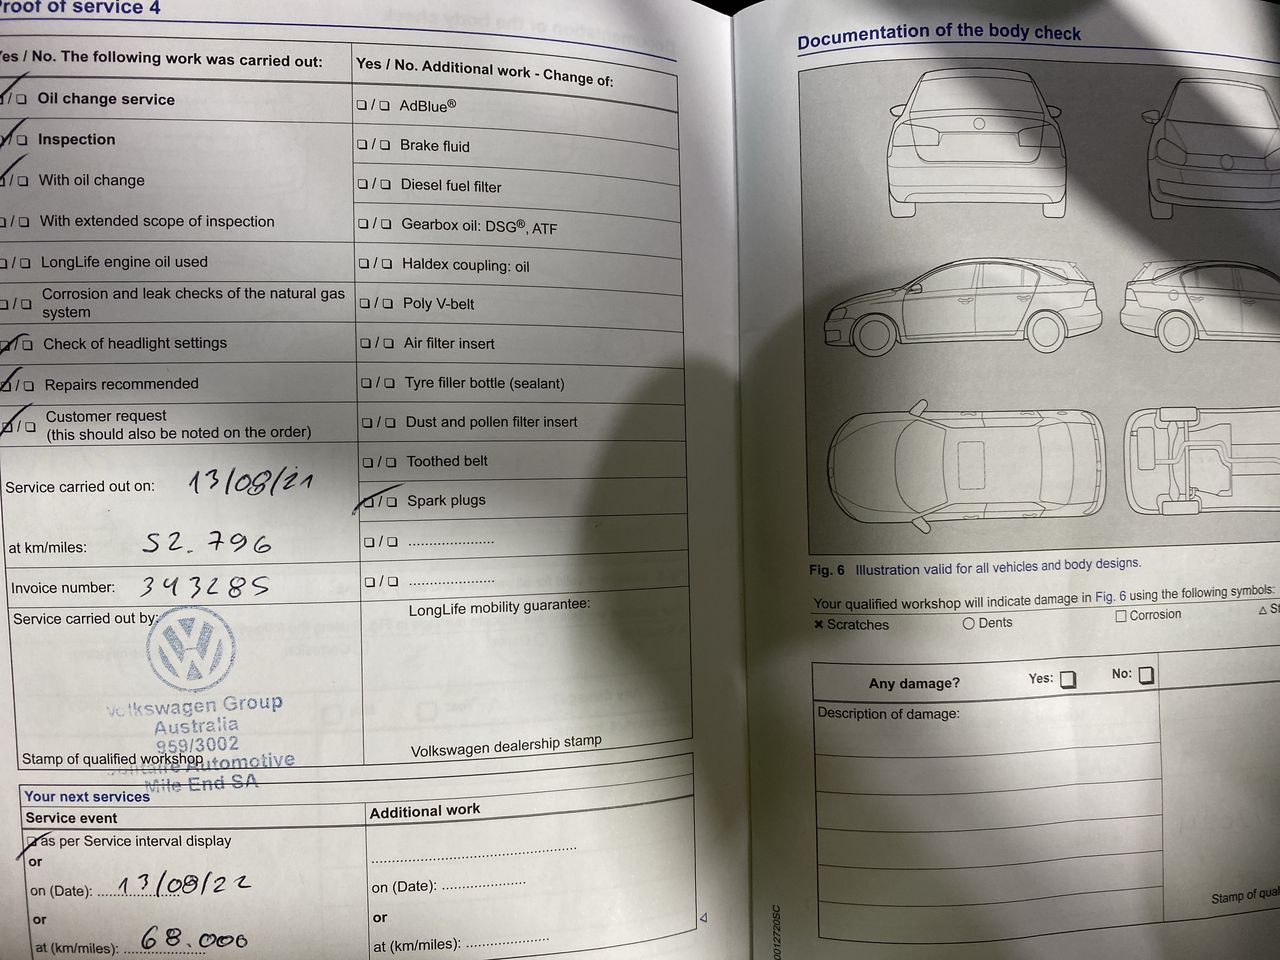 Proof of service 4
Yes / No. The following work was carried out:
Oil change service
Inspection
With oil change
With extended scope of inspection
LongLife engine oil used
Corrosion and leak checks of the natural gas
system
Check of headlight settings
Repairs recommended
Customer request
(this should also be noted on the order)
Service carried out on: 13/08/21
at km/miles: 52.796
Invoice number: 343285
Service carried out by:
Volkswagen Group
Australia
959/3002
Stamp of qualified workshop
Automotive
Mile End SA
Yes / No. Additional work - Change of:
AdBlue®
Brake fluid
Diesel fuel filter
Gearbox oil: DSG®, ATF
Haldex coupling: oil
Poly V-belt
Air filter insert
Tyre filler bottle (sealant)
Dust and pollen filter insert
Toothed belt
Spark plugs
LongLife mobility guarantee:
Volkswagen dealership stamp
Your next services
Service event
as per Service interval display
or
on (Date): 13/08/22
or
at (km/miles): 68.000
Additional work
on (Date):
or
at (km/miles):
Documentation of the body check
Fig. 6 Illustration valid for all vehicles and body designs.
Your qualified workshop will indicate damage in Fig. 6 using the following symbols:
× Scratches ○ Dents □ Corrosion △ St
Any damage? Yes: No:
Description of damage:
Stamp of qual
0012720SC